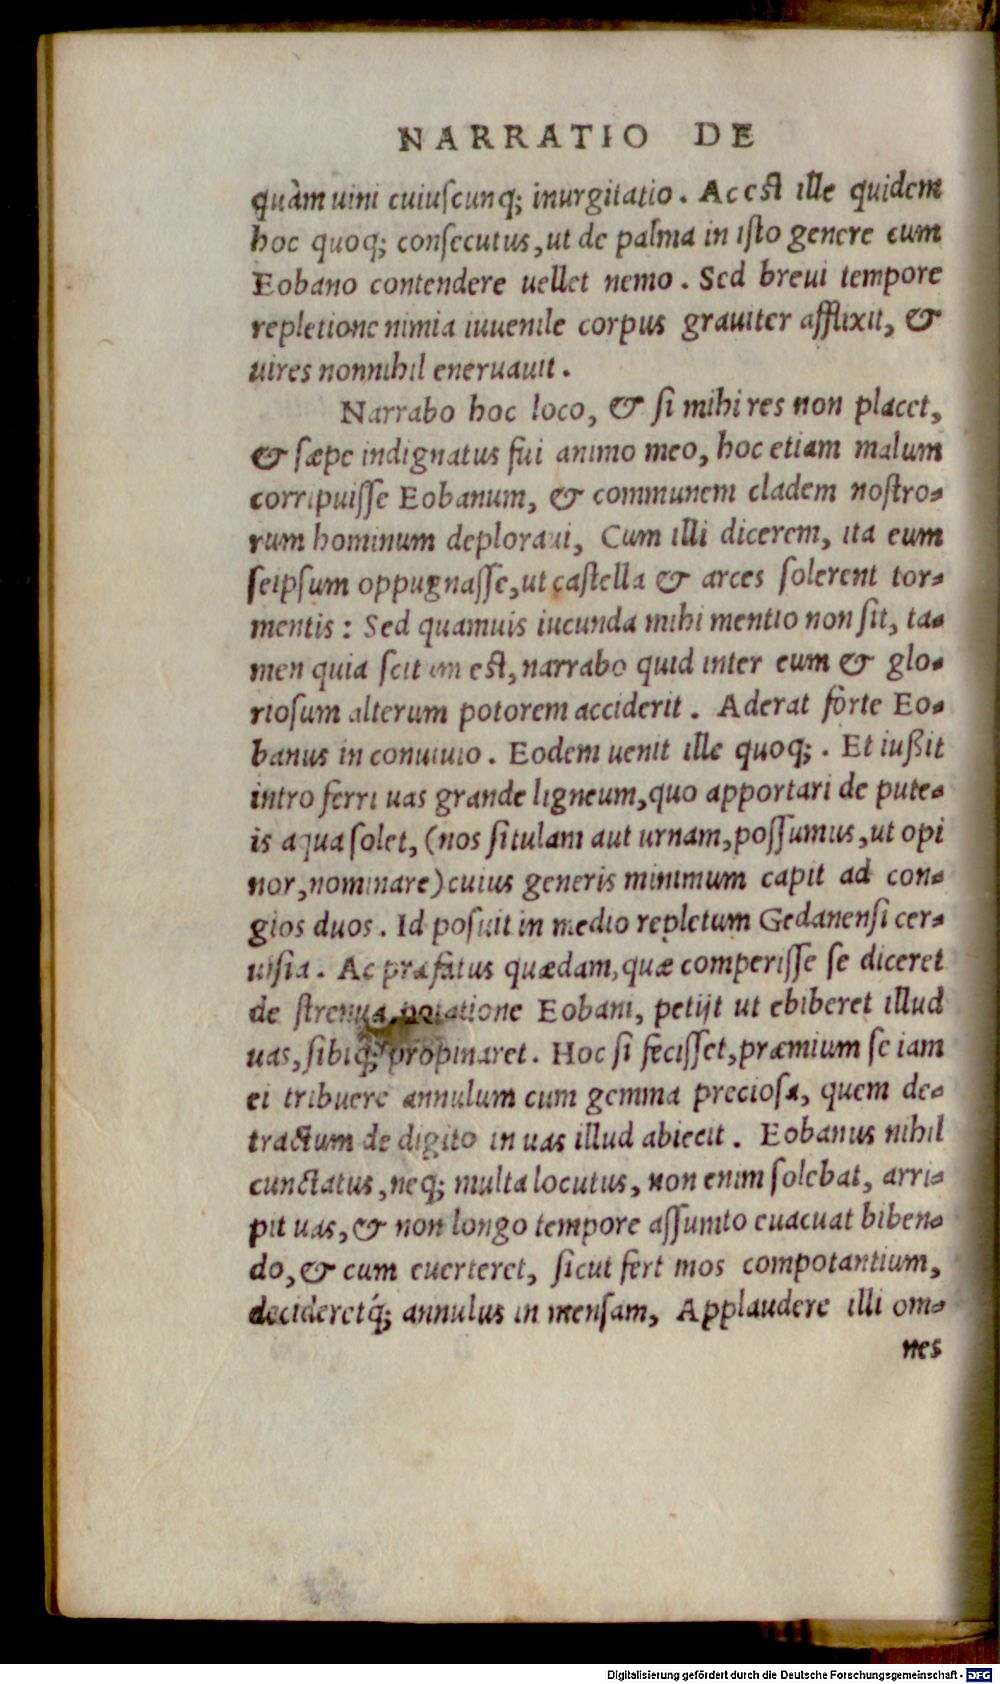 NARRATIO DE
quàm uini cuiuſcunq; inurgitatio. Ac eſt ille quidem
hoc quoq; conſecutus, ut de palma in iſto genere cum
Eobano contendere uellet nemo. Sed breui tempore
repletione nimia iuuenile corpus grauiter afflixit, &
uires nonnihil eneruauit.
Narrabo hoc loco, & ſi mihi res non placet,
& ſæpe indignatus fui animo meo, hoc etiam malum
corripuiſſe Eobanum, & communem cladem noſtro-
rum hominum deploraui, Cum illi dicerem, ita eum
ſeipſum oppugnaſſe, ut caſtella & arces ſolerent tor-
mentis: Sed quamuis iucunda mihi mentio non ſit, ta-
men quia ſcitum eſt, narrabo quid inter eum & glo-
rioſum alterum potorem acciderit. Aderat forte Eo-
banus in conuiuio. Eodem uenit ille quoq;. Et iußit
intro ferri uas grande ligneum, quo apportari de pute-
is aqua ſolet, (nos ſitulam aut urnam, poſſumus, ut opi
nor, nominare) cuius generis minimum capit ad con-
gios duos. Id poſuit in medio repletum Gedanenſi cer-
uiſia. Ac præfatus quædam, quæ comperiſſe ſe diceret
de ſtrenua potatione Eobani, petijt ut ebiberet illud
uas, ſibiq; propinaret. Hoc ſi feciſſet, præmium ſe iam
ei tribuere annulum cum gemma precioſa, quem de-
tractum de digito in uas illud abiecit. Eobanus nihil
cunctatus, neq; multa locutus, non enim ſolebat, arri-
pit uas, & non longo tempore aſſumto euacuat biben-
do, & cum euerteret, ſicut fert mos compotantium,
decideretq́; annulus in menſam, Applaudere illi om-
nes
Digitalisierung gefördert durch die Deutsche Forschungsgemeinschaft - DFG